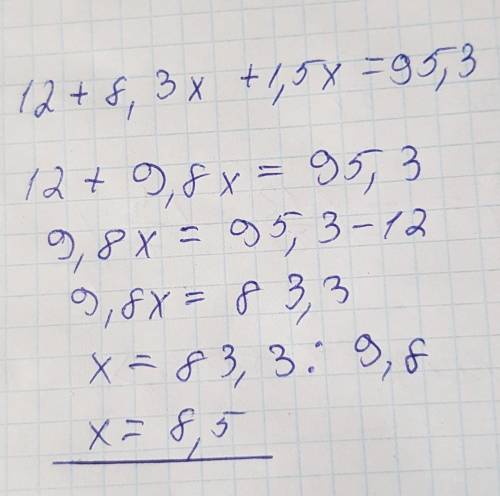 12 + 8,3x + 1,5x = 95,3
12 + 9,8x = 95,3
9,8x = 95,3 - 12
9,8x = 83,3
x = 83,3 : 9,8
x = 8,5